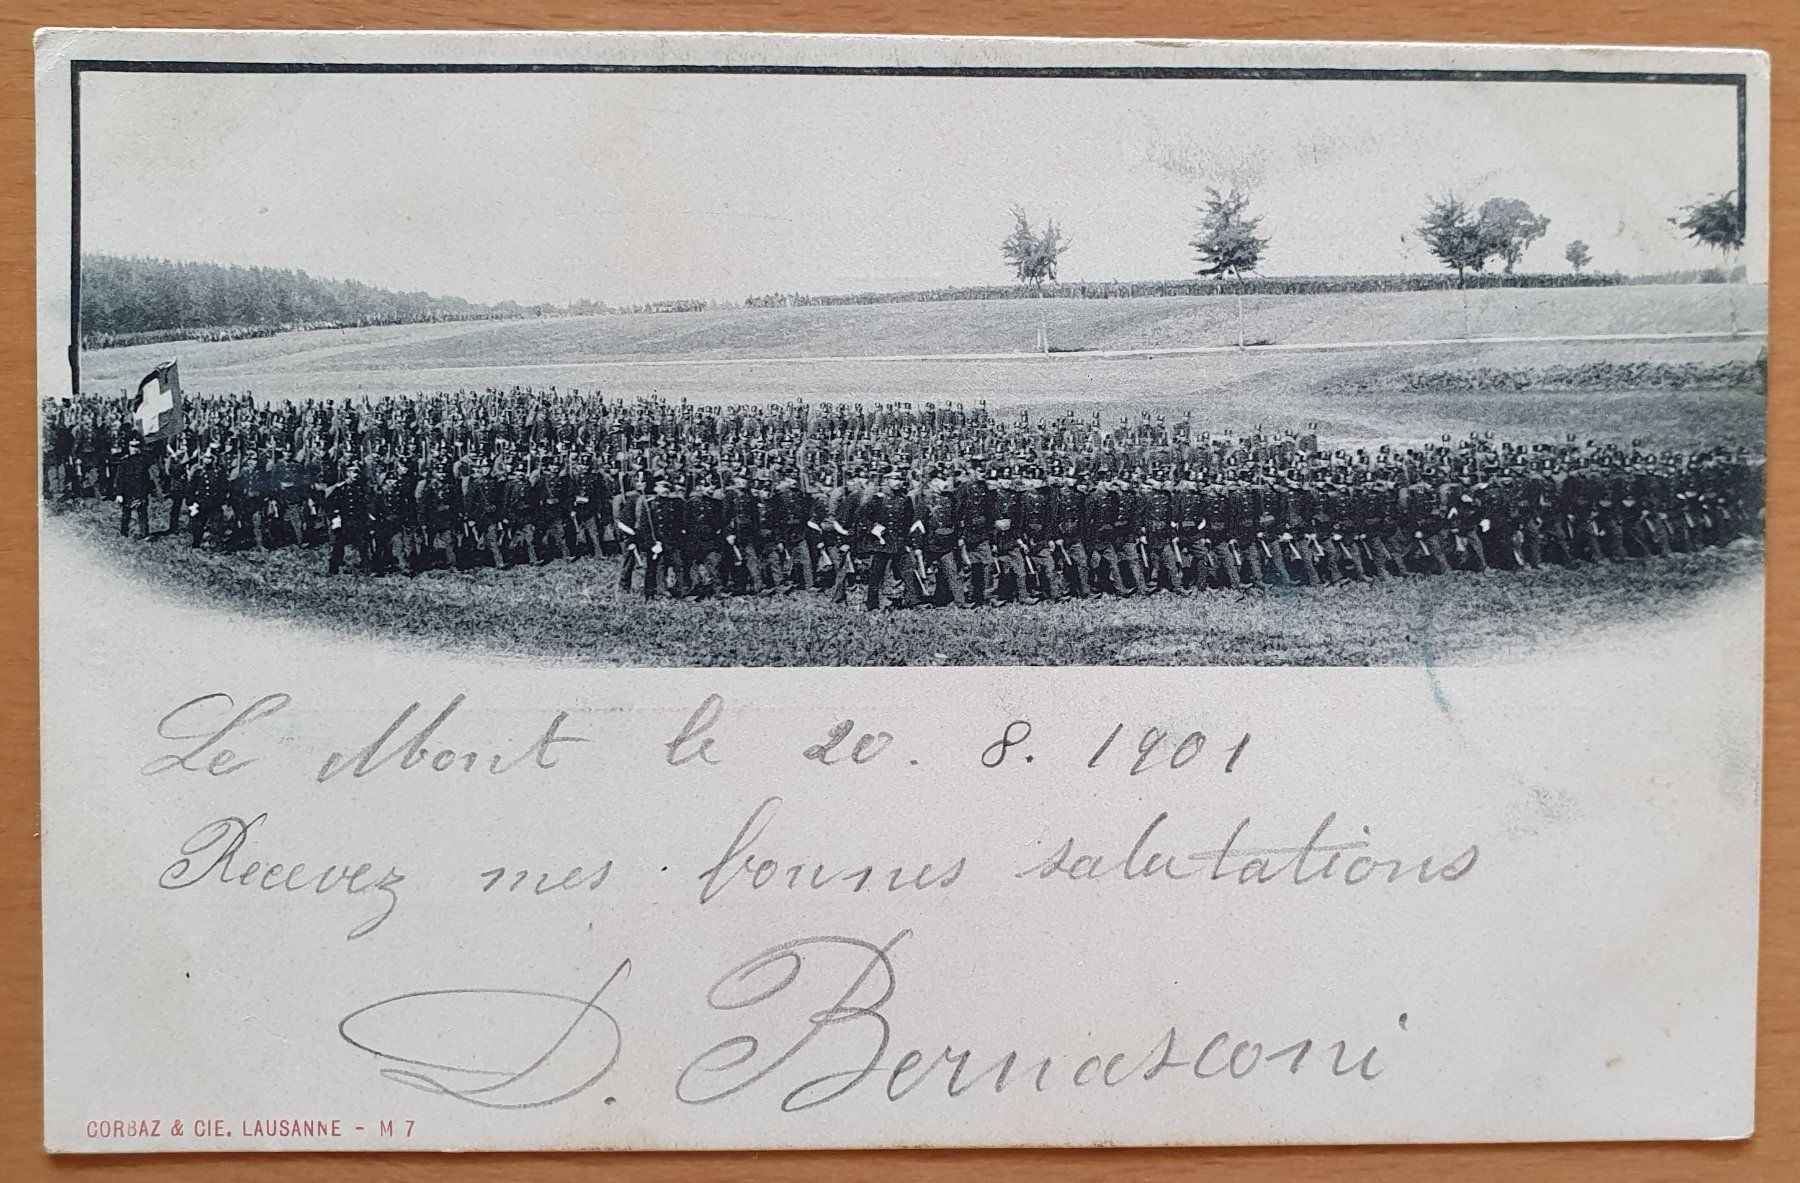 Le Mont le 20. 8. 1901
Recevez mes bonnes salutations
D. Bernasconi
CORBAZ & CIE. LAUSANNE - M 7